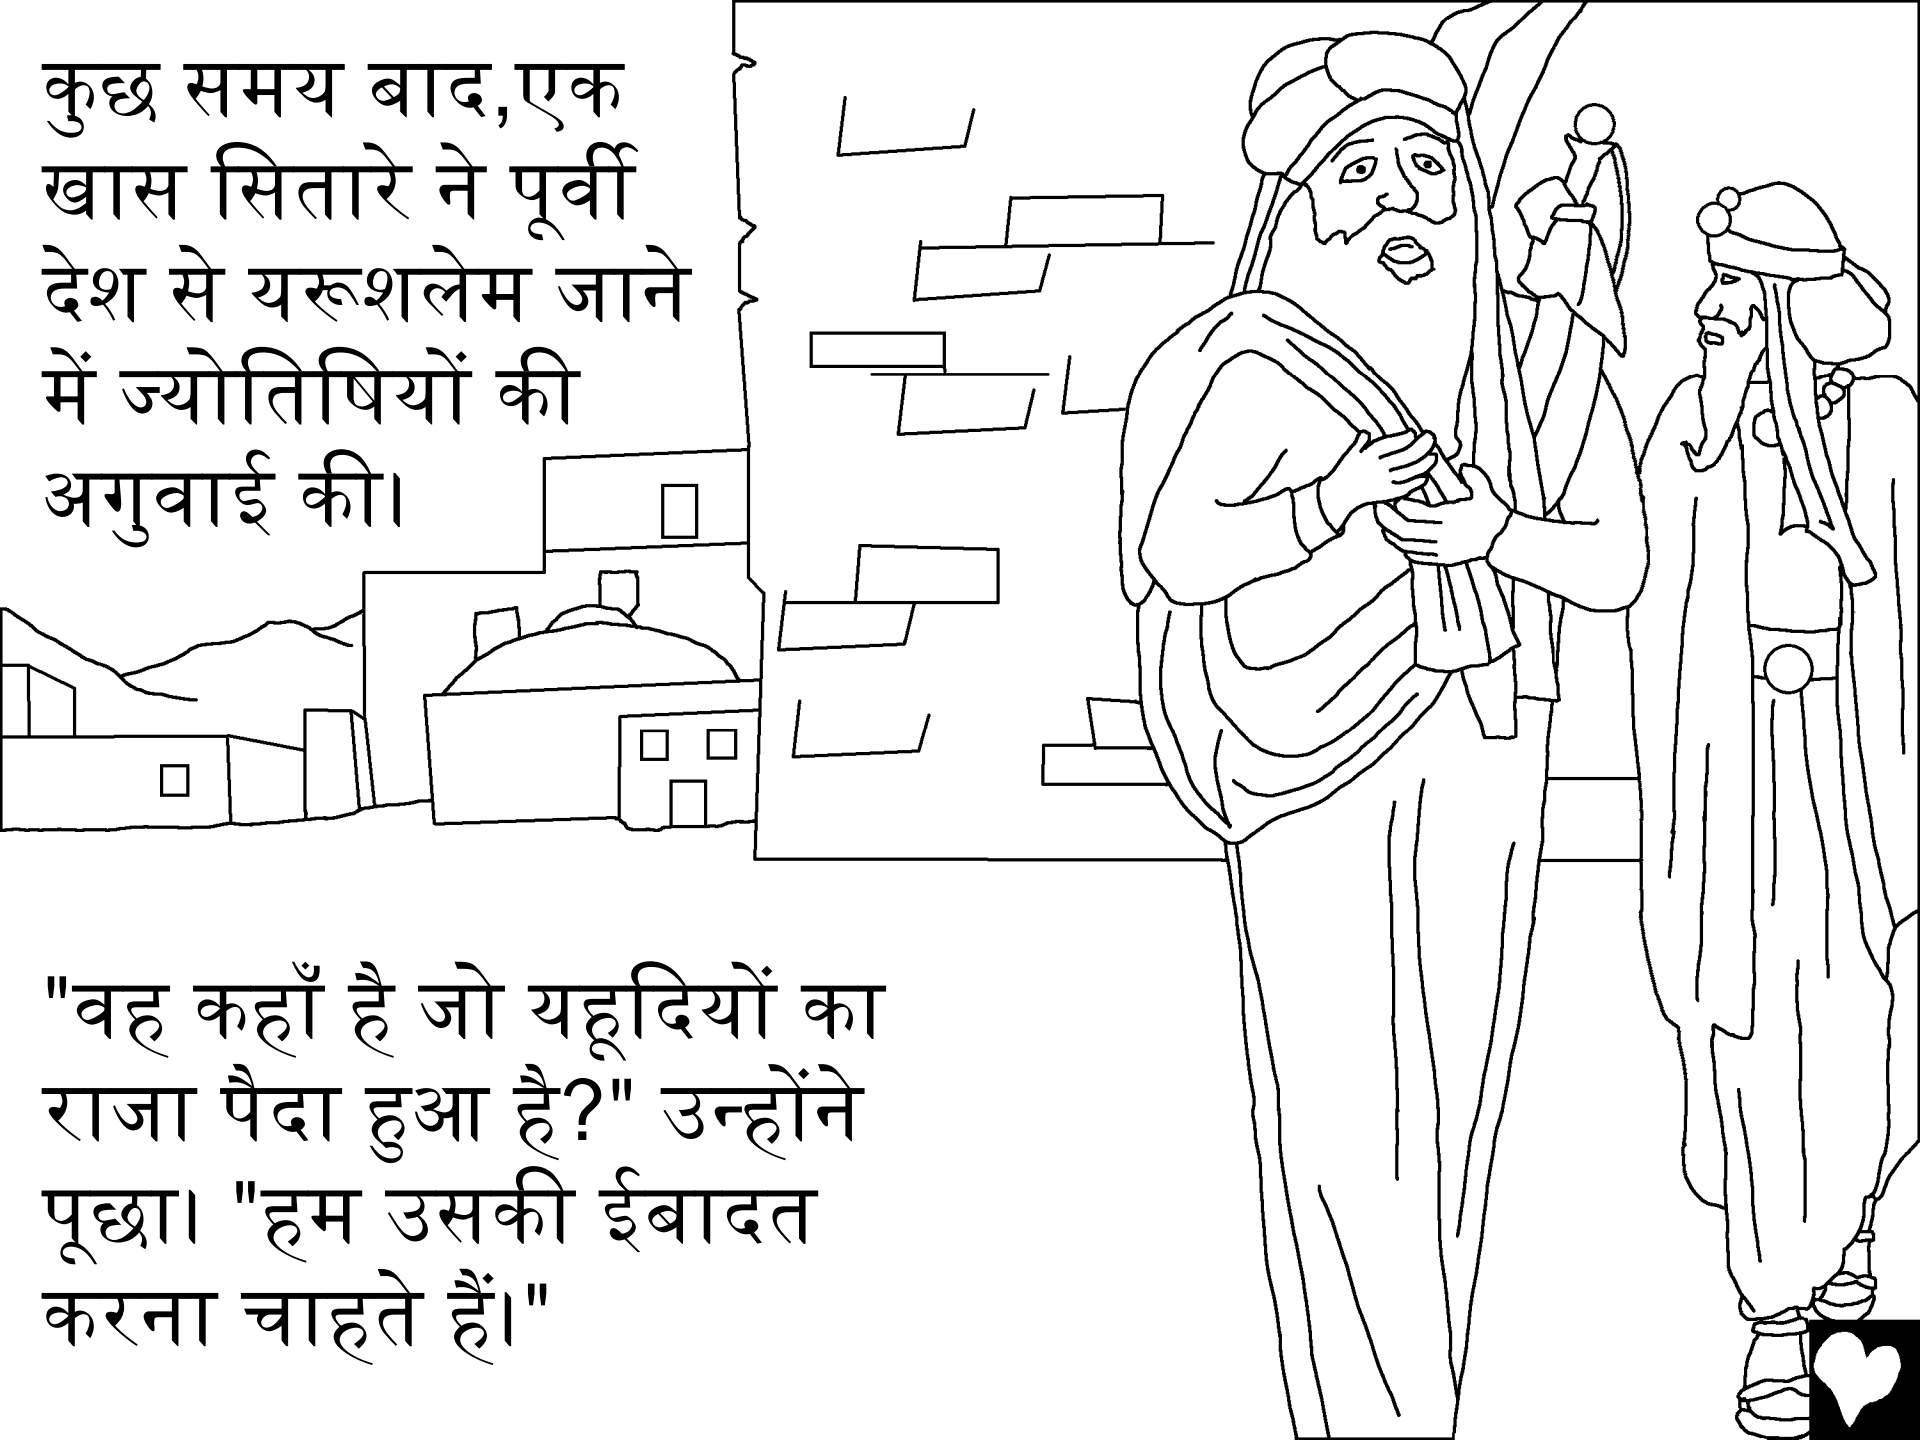 कुछ समय बाद,एक
खास सितारे ने पूर्वी
देश से यरूशलेम जाने
में ज्योतिषियों की
अगुवाई की।
"वह कहाँ है जो यहूदियों का
राजा पैदा हुआ है?" उन्होंने
पूछा। "हम उसकी ईबादत
करना चाहते हैं।"